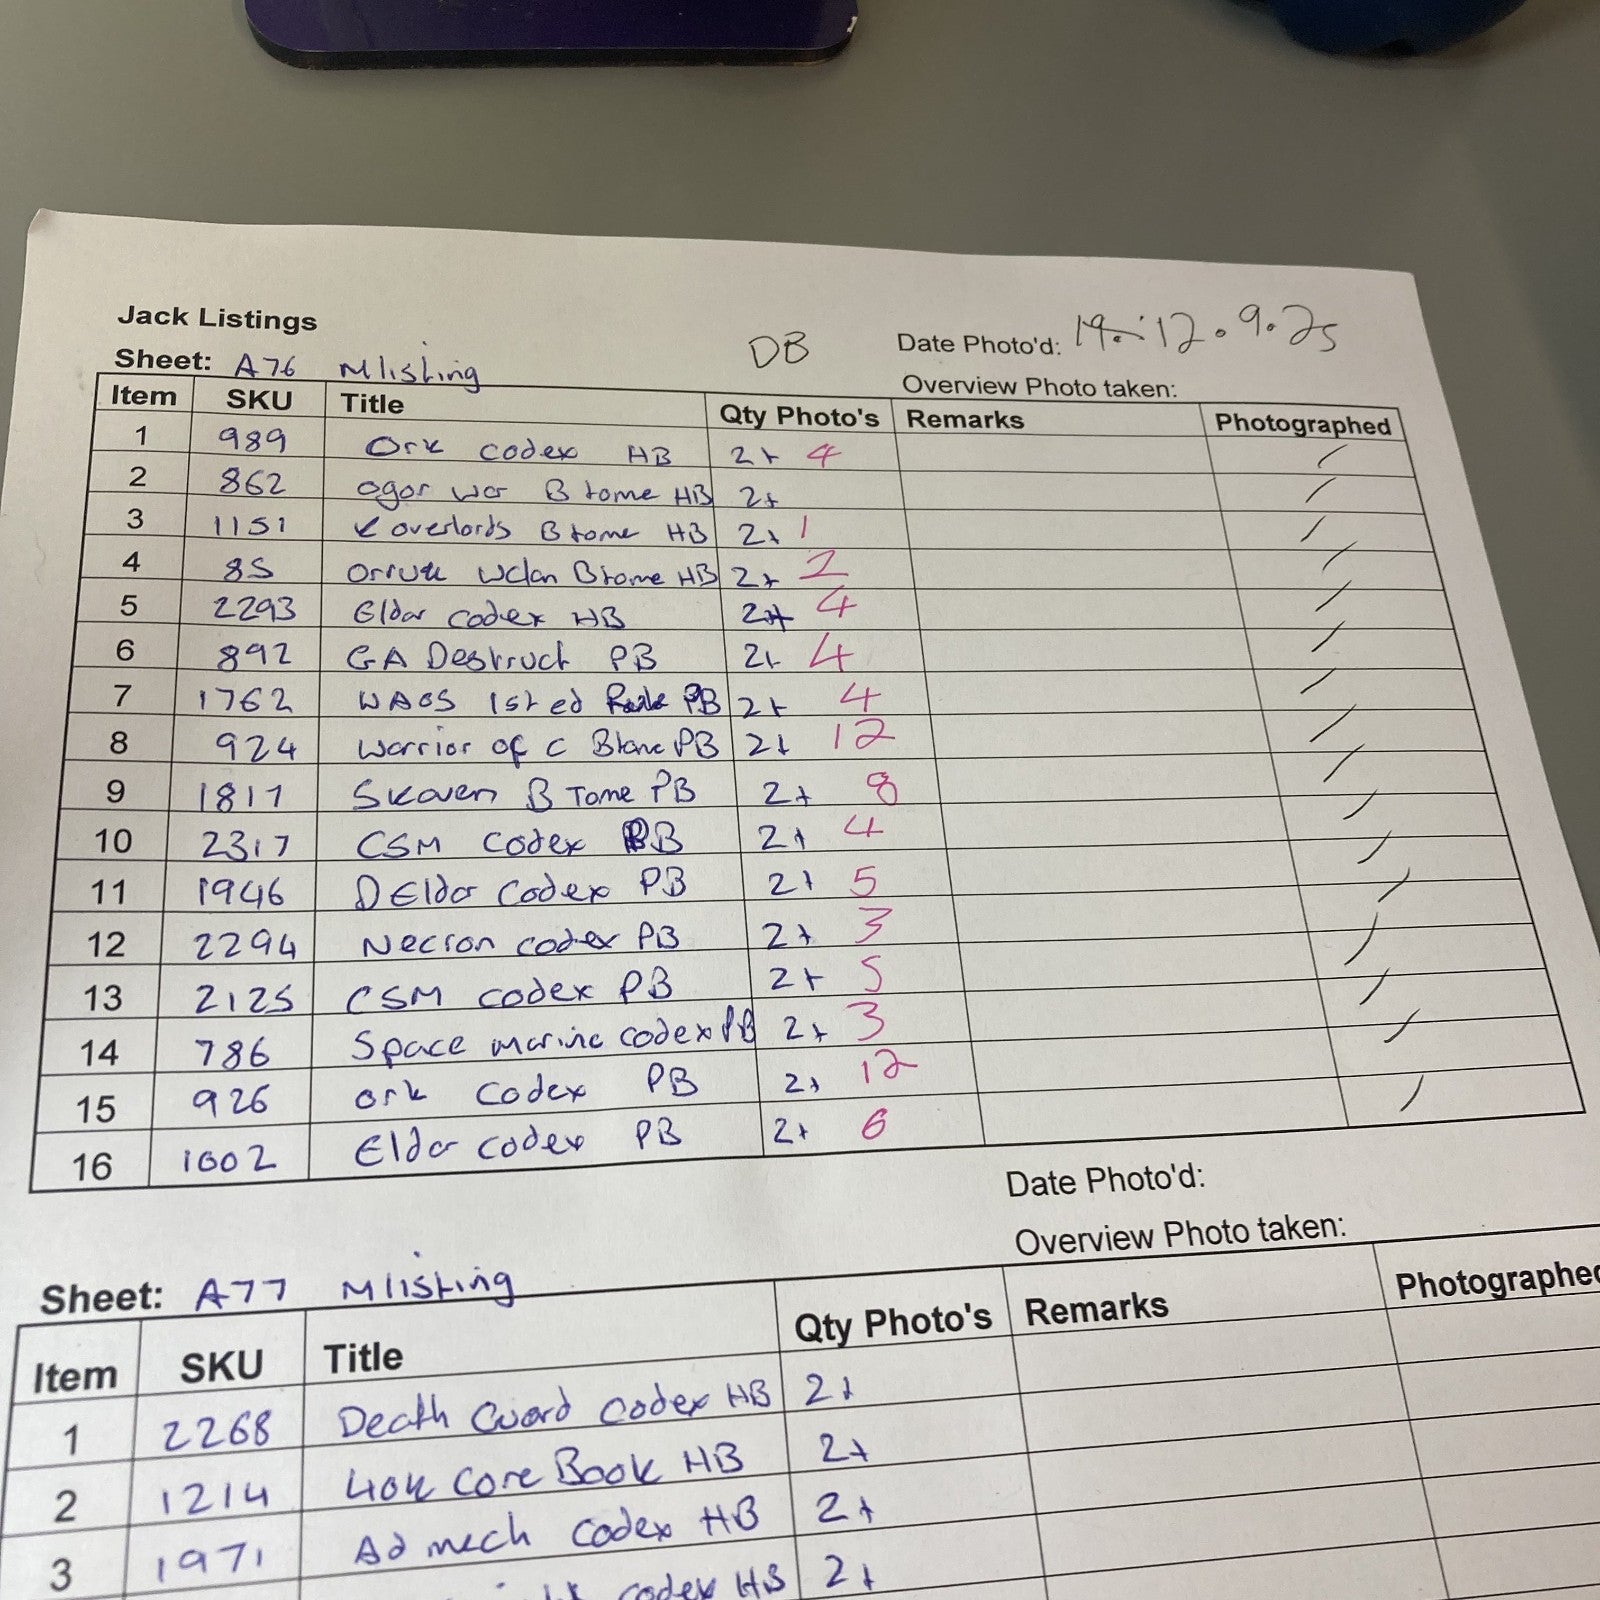 Jack Listings
Sheet: A76 Mlisting DB Date Photo'd: 19.:12.9.25
Overview Photo taken:
Item SKU Title Qty Photo's Remarks Photographed
1 989 Ork codex HB 2+ 4 /
2 862 ogor war B tome HB 2+ /
3 1151 K overlords B tome HB 2+ 1 /
4 85 Orruk wclan Btome HB 2+ 2 /
5 2293 Eldar codex HB 2+ 4 /
6 892 GA Destruct PB 2+ 4 /
7 1762 WAOS 1st ed PB 2+ 4 /
8 924 Warrior of C Btome PB 2+ 12 /
9 1817 Skaven B Tome PB 2+ 8 /
10 2317 CSM codex PB 2+ 4 /
11 1946 D Eldar Codex PB 2+ 5 /
12 2294 Necron codex PB 2+ 3 /
13 2125 CSM codex PB 2+ 5 /
14 786 Space marine codex PB 2+ 3 /
15 926 ork codex PB 2+ 12 /
16 1002 Eldar codex PB 2+ 6 /
Date Photo'd:
Overview Photo taken:
Sheet: A77 Mlisting
Item SKU Title Qty Photo's Remarks Photographed
1 2268 Death Guard codex HB 2+
2 1214 40k Core Book HB 2+
3 1971 Ad mech codex HB 2+
codex HB 2+